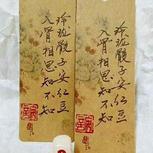 玲珑骰子安红豆
入骨相思知不知
玲珑骰子安红豆
入骨相思知不知